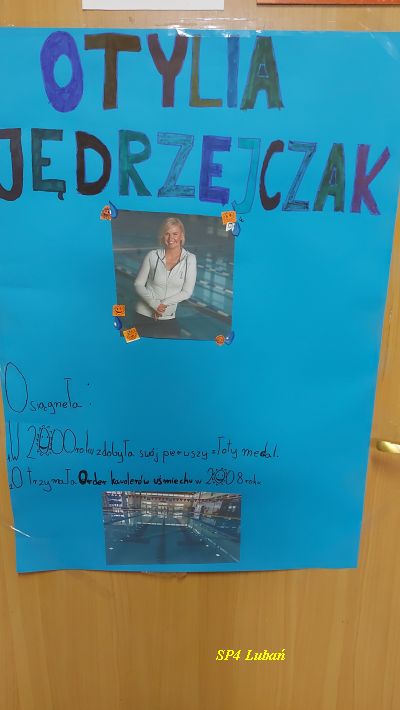 OTYLIA
JĘDRZEJCZAK
Osiągnęła:
W 2000 roku zdobyła swój pierwszy złoty medal.
Otrzymała Order kawalerów uśmiechu w 2008 roku
SP4 Lubań